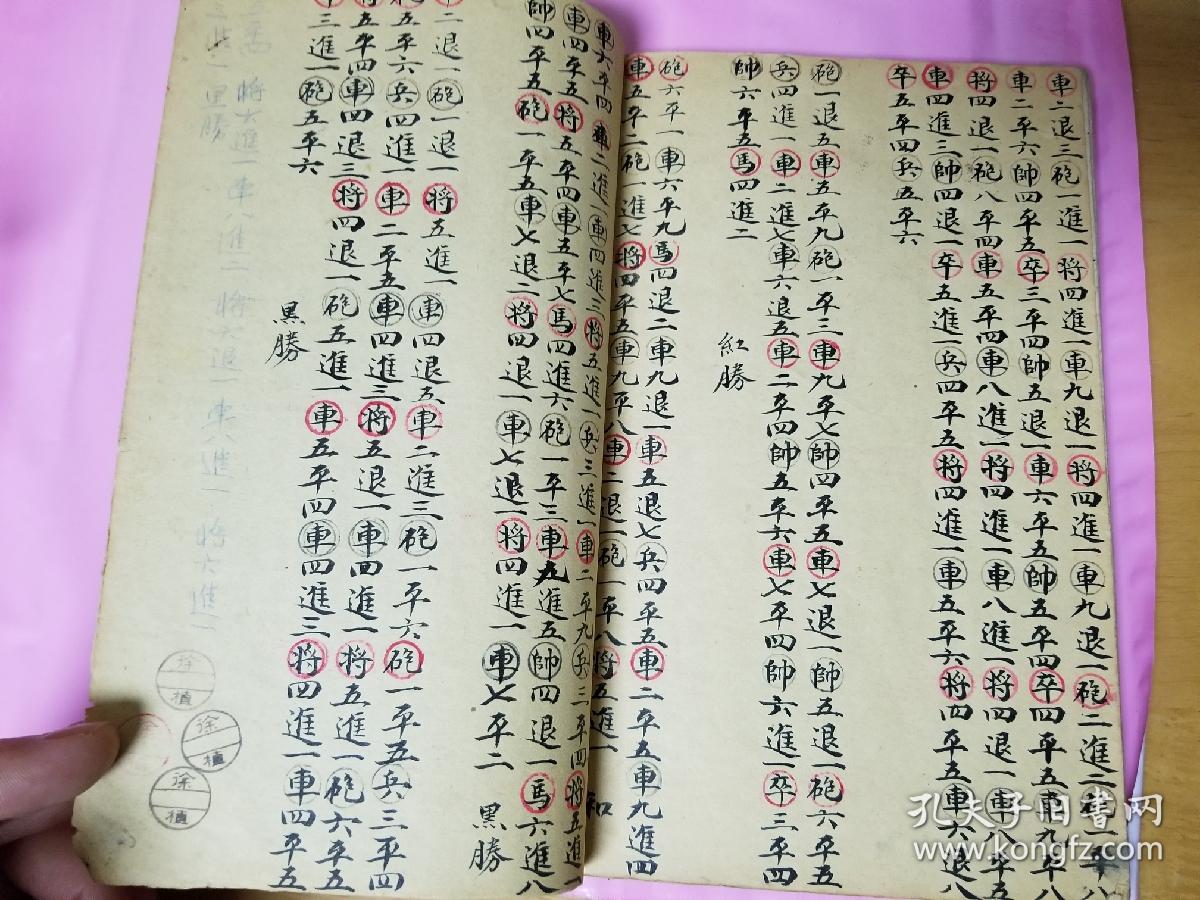 車二退三砲一進一將四進一車九退一將四進一車九退一砲二進二
車二平六帥四平五卒三平四帥五退一車六平五帥五平四卒四平五車九平八
將四退一砲八平四車五平四車八進一將四進一車八進一將四退一車八平五
車四進三帥四退一卒五進一兵四平五將四進一車五平六將四平五車六退八
卒五平四兵五平六
砲一退五車五平九砲一平三車九平七帥四平五車七退一帥五退一砲六平五
兵四進一車二進七車六退五車二平四帥五平六車七平四帥六進一卒三平四
帥六平五馬四進二
紅勝
砲六平一車六平九馬四退二車九退一車五退七兵四平五車二平五車九進四
車五平二砲一進七將四平五車九平八車二退一砲一平八將五進一
和
車六平四車二進一車四進三將五進一兵三進一車二平九兵三平四將五進一
車四平五將五平四車五平七馬四進六砲一平三車九進五帥四退一馬六進八
帥四平五砲一平五車七退二將四退一車七退一將四進一車七平二
黑勝
二退一砲一退一將五進一車四退五車二進三砲一平六砲一平五兵三平四
五平六兵四進一車二平五車四進三將五退一車四進一將五進一砲六平五
將五平四車四退三將四退一砲五進一車五平四車四進三將四進一車四平五
三進一砲五平六
黑勝
徐
植
徐
植
徐
植
孔夫子旧书网
www.kongfz.com